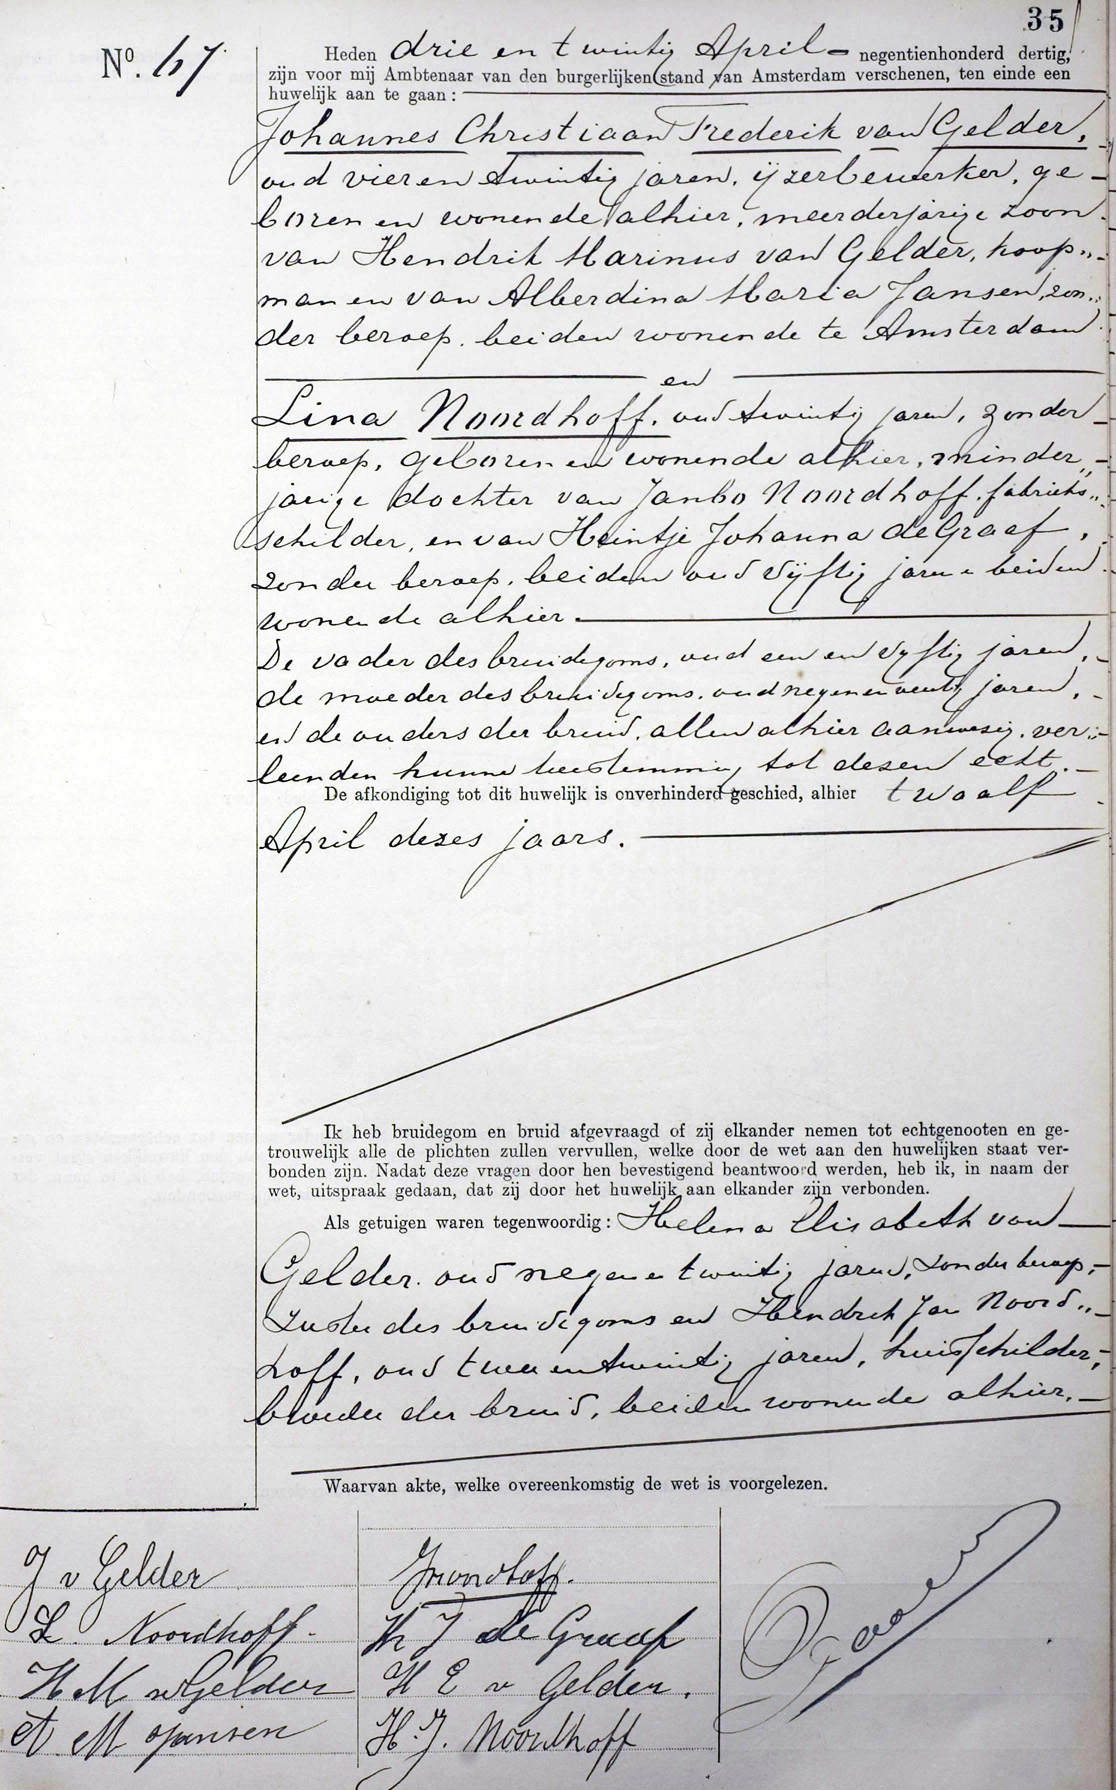 35
Nº. 67
Heden drie en twintig April negentienhonderd dertig,
zijn voor mij Ambtenaar van den burgerlijken stand van Amsterdam verschenen, ten einde een
huwelijk aan te gaan:
Johannes Christiaan Frederik van Gelder,
oud vier en twintig jaren, ijzerbewerker, ge-
boren en wonende alhier, meerderjarige zoon
van Hendrik Marinus van Gelder, koop„
man en van Alberdina Maria Jansen, zon„
der beroep, beiden wonende te Amsterdam
en
Lina Noordhoff, oud twintig jaren, zonder
beroep, geboren en wonende alhier, minder„
jarige dochter van Janbo Noordhoff, fabrieks„
schilder, en van Heintje Johanna de Graaf,
zonder beroep, beiden oud vijftig jaren beiden
wonende alhier.
De vader des bruidegoms, oud een en vijftig jaren,
de moeder des bruidegoms, oud negen en veertig jaren,
en de ouders der bruid, allen alhier aanwezig, ver„
leenden hunne toestemming tot dezen echt.
De afkondiging tot dit huwelijk is onverhinderd geschied, alhier twaalf
April dezes jaars.
Ik heb bruidegom en bruid afgevraagd of zij elkander nemen tot echtgenooten en ge-
trouwelijk alle de plichten zullen vervullen, welke door de wet aan den huwelijken staat ver-
bonden zijn. Nadat deze vragen door hen bevestigend beantwoord werden, heb ik, in naam der
wet, uitspraak gedaan, dat zij door het huwelijk aan elkander zijn verbonden.
Als getuigen waren tegenwoordig: Helena Elisabeth van
Gelder, oud negen en twintig jaren, zonder beroep,
zuster des bruidegoms en Hendrik Jan Noord„
hoff, oud twee en twintig jaren, huisschilder,
broeder der bruid, beiden wonende alhier.
Waarvan akte, welke overeenkomstig de wet is voorgelezen.
J v Gelder
L. Noordhoff.
H M v Gelder
A M Jansen
J Noordhoff.
H J de Graaf
H E v Gelder.
H. J. Noordhoff